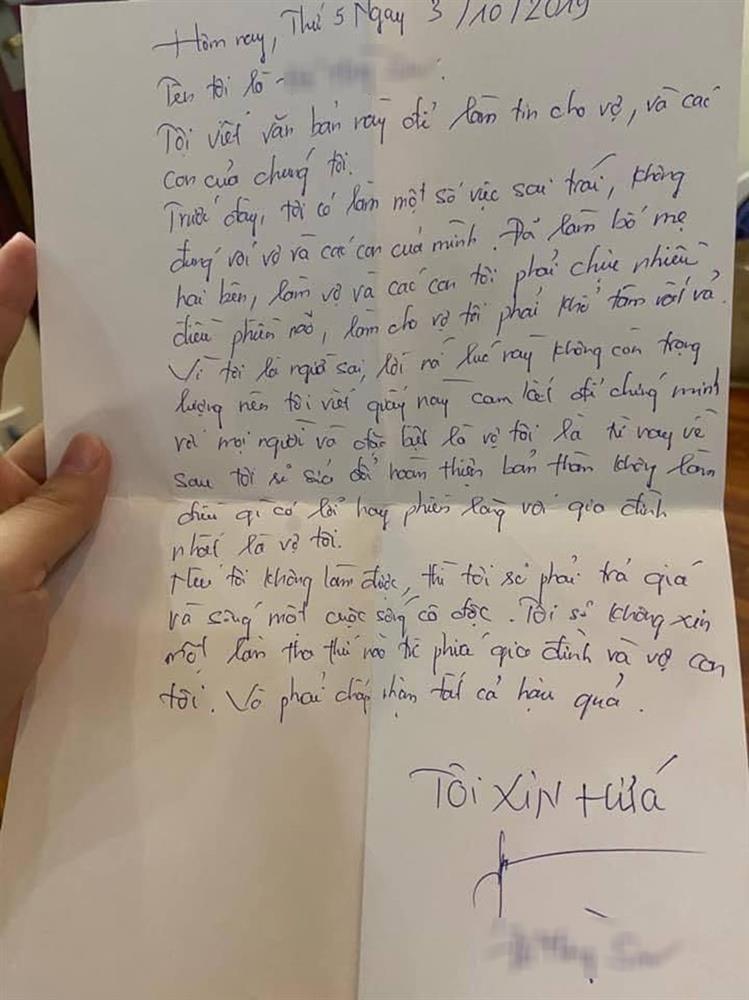 Hôm nay, Thứ 5 Ngày 3/10/2019
Tên tôi là
Tôi viết văn bản này để làm tin cho vợ, và các
con của chúng tôi.
Trước đây, tôi có làm một số việc sai trái, không
đúng với vợ và các con của mình. Đã làm bố mẹ
hai bên, làm vợ và các con tôi phải chịu nhiều
điều phiền não, làm cho vợ tôi phải khổ tâm vất vả.
Vì tôi là người sai, lời nó lúc này không còn trọng
lượng nên tôi viết giấy này cam kết để chứng minh
với mọi người và đặc biệt là vợ tôi là từ nay về
sau tôi sẽ sửa đổi hoàn thiện bản thân không làm
điều gì có lỗi hay phiền lòng với gia đình
nhất là vợ tôi.
Nếu tôi không làm được, thì tôi sẽ phải trả giá
và sống một cuộc sống cô độc. Tôi sẽ không xin
một lần tha thứ nào từ phía gia đình và vợ con
tôi. Và phải chấp nhận tất cả hậu quả.
Tôi XIN HỨA